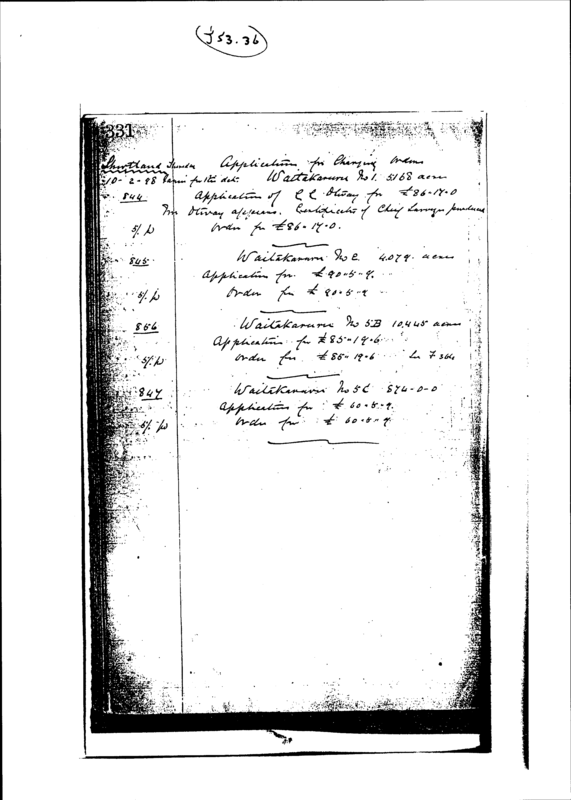 J53.36
331
Shortland Thursday Applications for Charging Orders
10-2-98 Waitakaruru No 1. 5168 acres
844 Application of C C Otway for £86-17-0
Mr Otway appears. Certificate of Chief Surveyor produced
5/. p Order for £86-17-0.
845 Waitakaruru No 2 4079. acres
Application for £90-5-9.
5/. p Order for £90-5-9
856 Waitakaruru No 5B 10,445 acres
Application for £85-19-6
5/. p Order for £85-19-6
847 Waitakaruru No 5C 874-0-0
Application for £60-5-9.
5/. p Order for £60-5-9